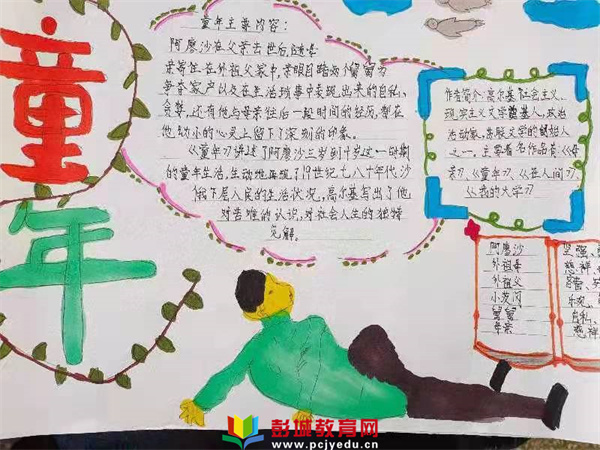 童年
童年主要内容:
阿廖沙在父亲去世后,随母
亲寄住在外祖父家中,亲眼目睹两个舅舅为
争夺家产以及在生活琐事中表现出来的自私、
贪婪,还有他与母亲往后一段时间的经历,都在
他幼小的心灵上留下了深刻的印象。
《童年》讲述了阿廖沙三岁到十岁这一时期
的童年生活,生动地再现了19世纪七八十年代沙
俄下层人民的生活状况,高尔基写出了他
对苦难的认识,对社会人生的独特
见解。
作者简介:高尔基社会主义、
现实主义文学奠基人,政治
活动家、苏联文学的创始人
之一。主要著名作品有《母
亲》、《童年》、《在人间》、
《我的大学》
阿廖沙
外祖母
外祖父
小茨冈
舅舅
母亲
坚强、
慈祥
自私、
慈祥
彭城教育网
www.pcjyedu.cn